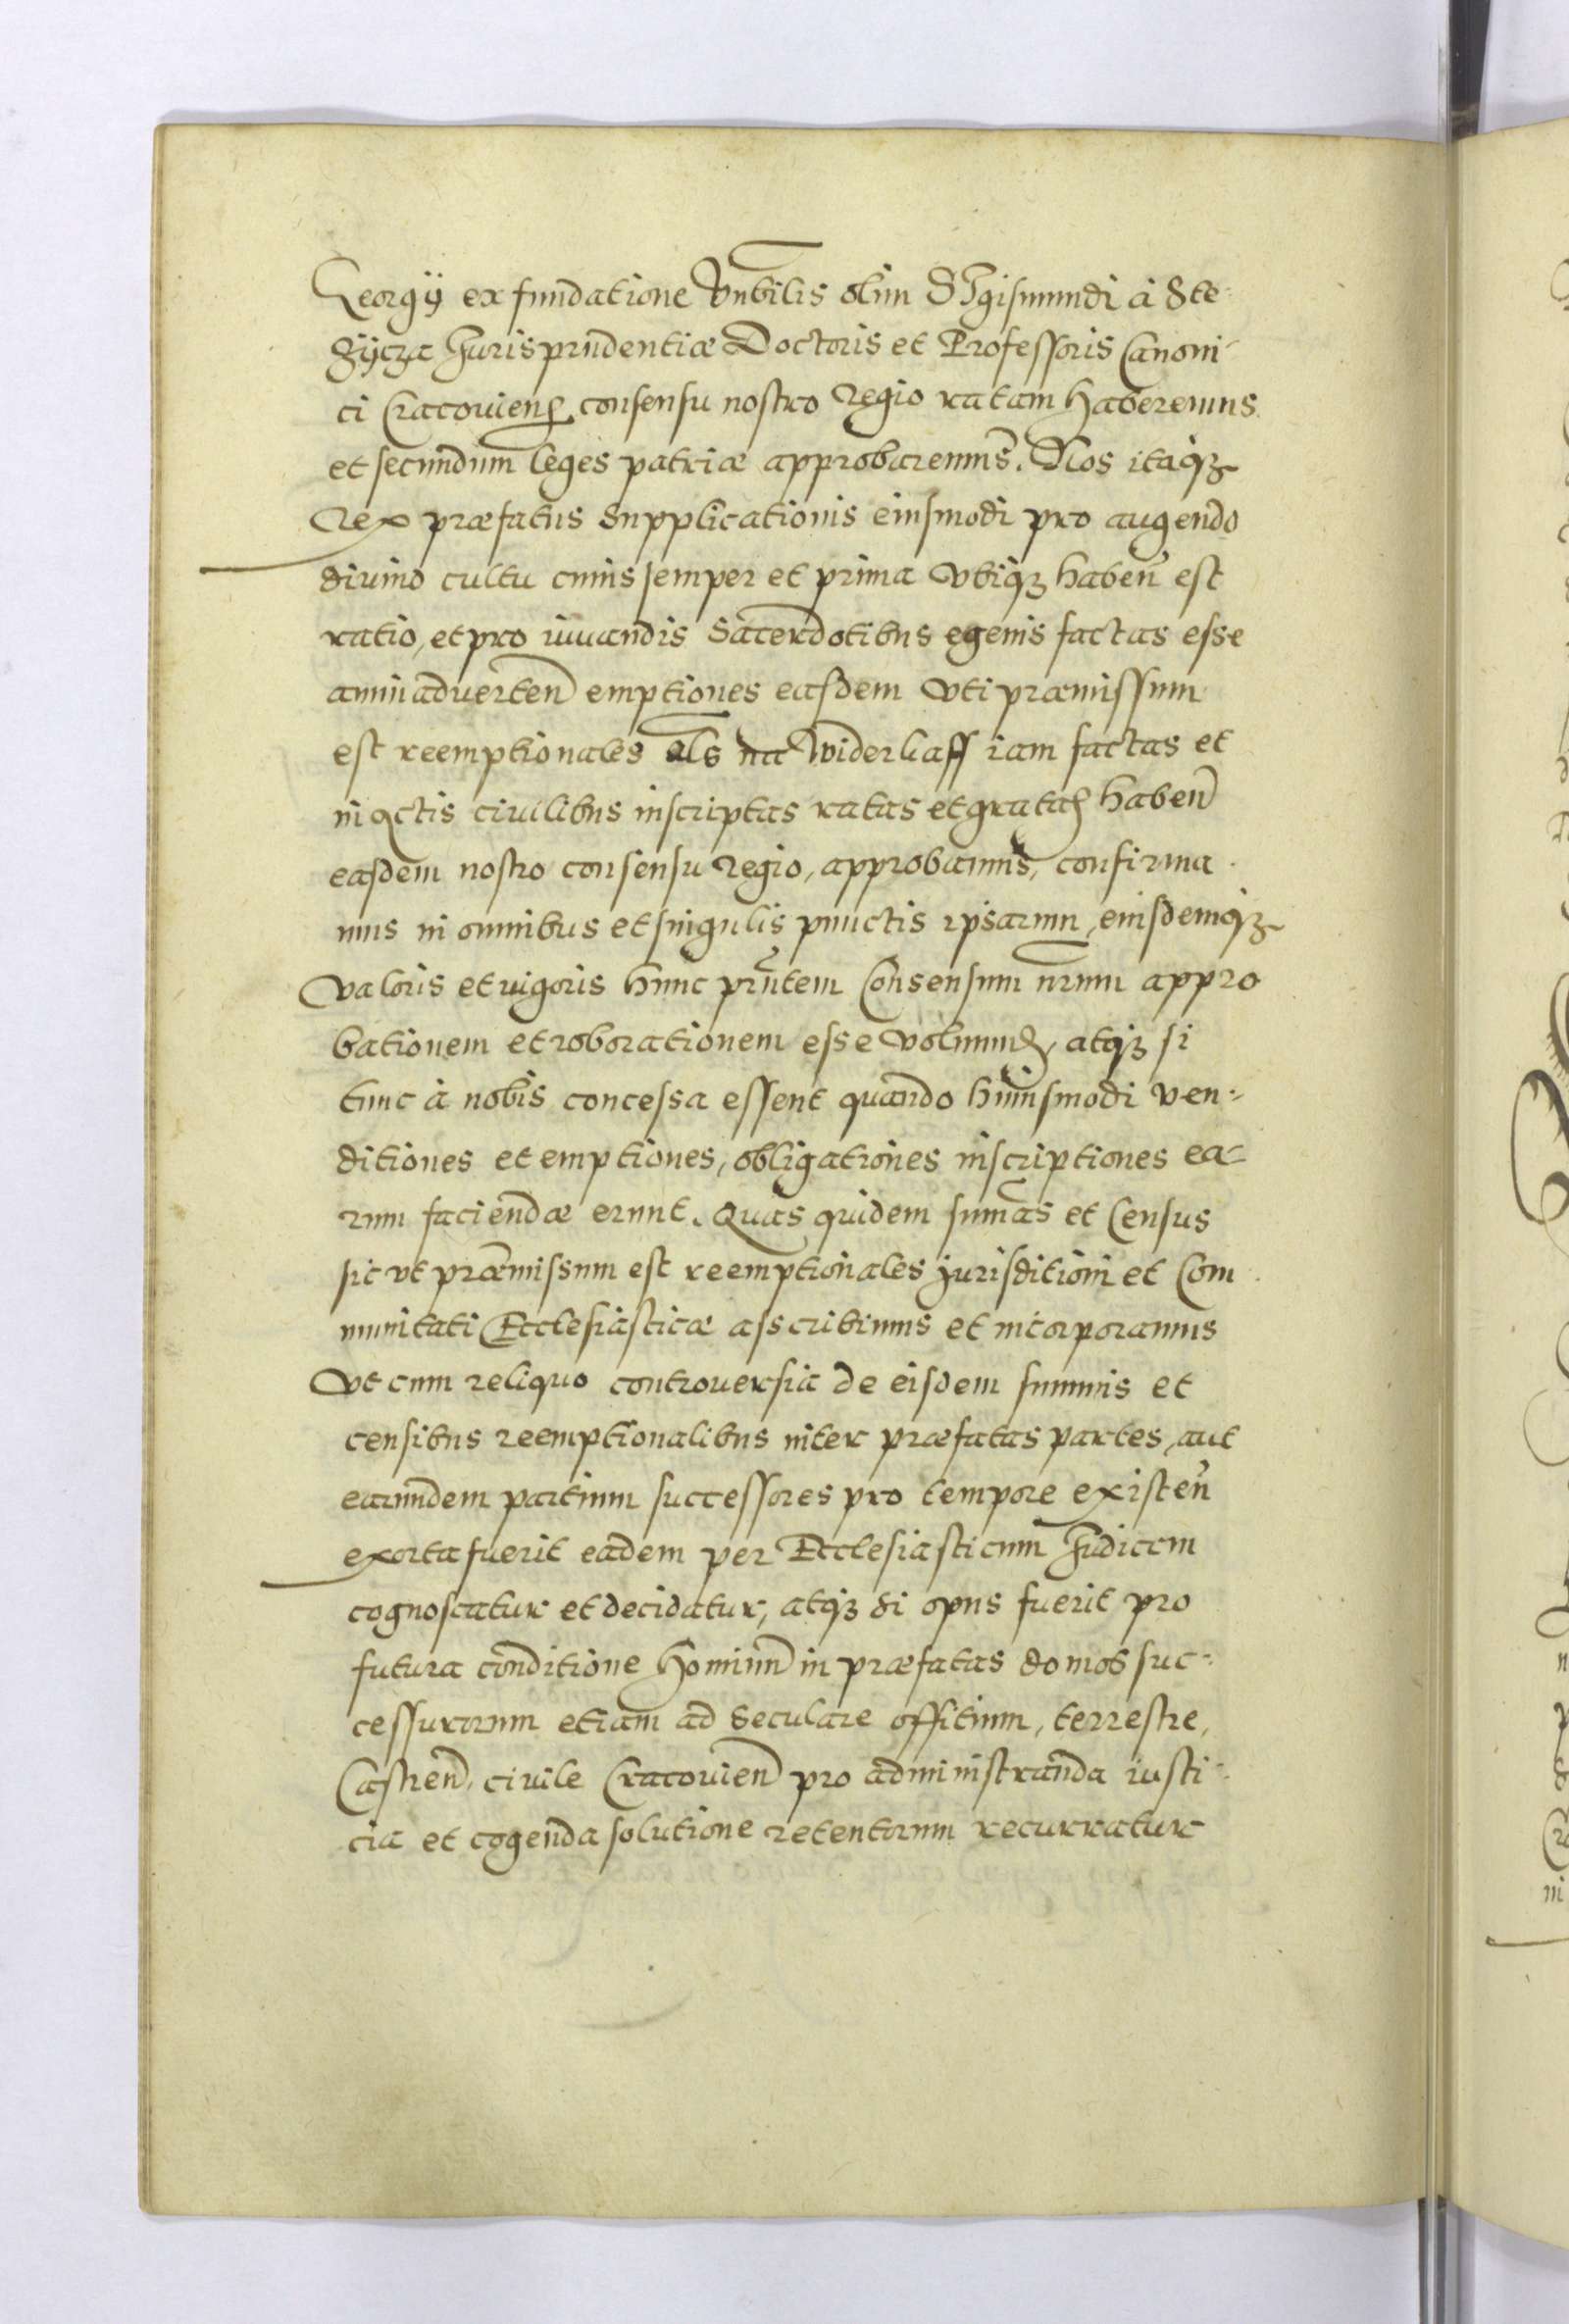 Georgÿ ex fundatione Vn̄bilis olim SIgismundi à Ste-
zÿcza Jurisprudentiæ Doctoris et Professoris Canoni-
ci Cracouieñ consensu nostro Regio ratam haberemus
et secundum leges patriæ approbaremus. Nos itaqꝫ
Rex præfatus Supplicationis eiusmodi pro augendo
diuino cultu cuius semper et prima Vtiqꝫ habeñ est
ratio, et pro iuuandis Sacerdotibus egenis factas esse
animaduerteñ emptiones easdem Vti præmissum
est reemptionales als na Widerkaff iam factas et
in actis ciuilibus inscriptas ratas et gratas habeñ
easdem nostro consensu Regio, approbamus, confirma-
mus in omnibus et singulis punctis ipsarum, eiusdemqꝫ
Valoris et uigoris hunc prñtem Consensum nrum appro
bationem et roborationem esse Volumus, atqꝫ si
tunc à nobis concessa essent quando huiusmodi Ven-
ditiones et emptiones, obligationes inscriptiones ea-
rum faciendæ erunt. Quas quidem sum̄as et Census
sic vt præmissum est reemptionales Jurisditioni et Com
munitati Ecclesiasticæ asscribimus et incorporamus
Vt cum reliquo controuersia de eisdem summis et
censibus reemptionalibus inter præfatas partes, aut
earundem partium successores pro tempore existeñ
exorta fuerit eadem per Ecclesiasticum Judicem
cognoscatur et decidatur, atqꝫ si opus fuerit pro
futura conditione Hominū in præfatas domos suc-
cessurorum etiam ad Seculare offitium, terrestre,
Castreñ, ciuile Cracouieñ pro administranda iusti-
cia et cogenda solutione retentorum recurratur